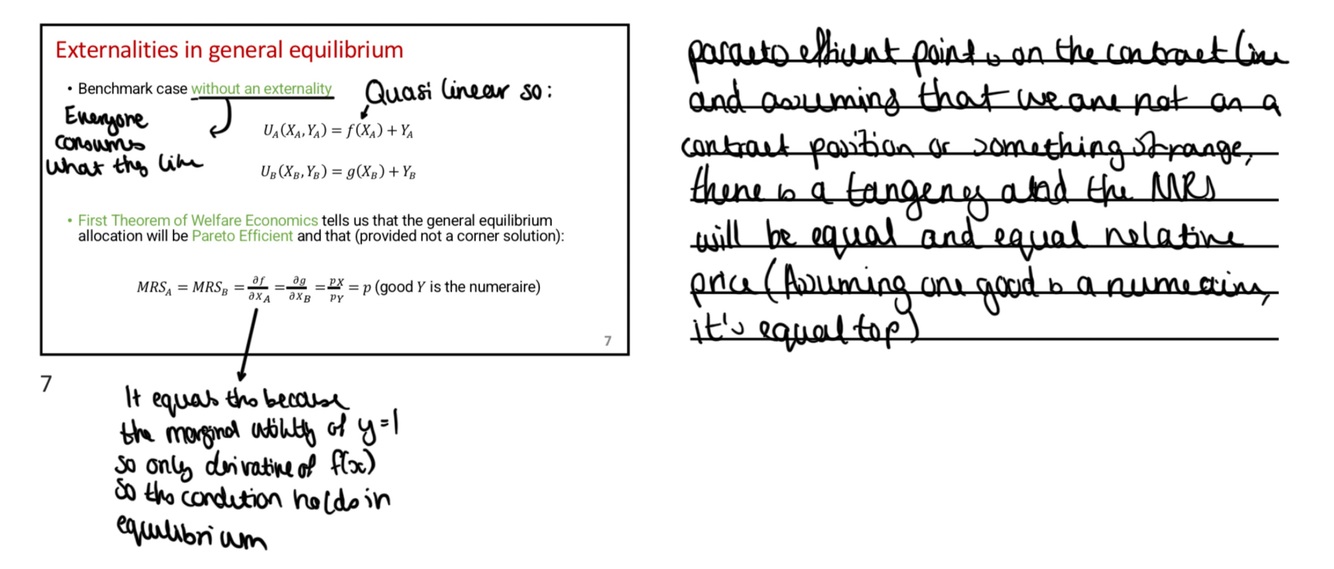 Externalities in general equilibrium
• Benchmark case without an externality
Quasi linear so:
Everyone
consumes
what they like
U_A(X_A, Y_A) = f(X_A) + Y_A
U_B(X_B, Y_B) = g(X_B) + Y_B
• First Theorem of Welfare Economics tells us that the general equilibrium
allocation will be Pareto Efficient and that (provided not a corner solution):
MRS_A = MRS_B = ∂f/∂X_A = ∂g/∂X_B = pX/pY = p (good Y is the numeraire)
7
7
It equals this because
the marginal utility of y=1
so only derivative of f(x)
So this condition holds in
equilibrium
pareto efficient point is on the contract line
and assuming that we are not on a
contract position or something strange,
there is a tangency and the MRS
will be equal and equal relative
price (Assuming one good is a numeraire,
it's equal to p)